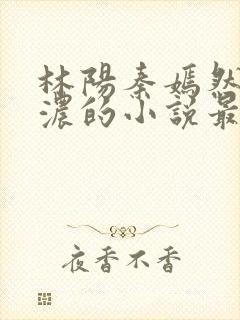 林陽秦嫣然
濃的小說最
夜香不香